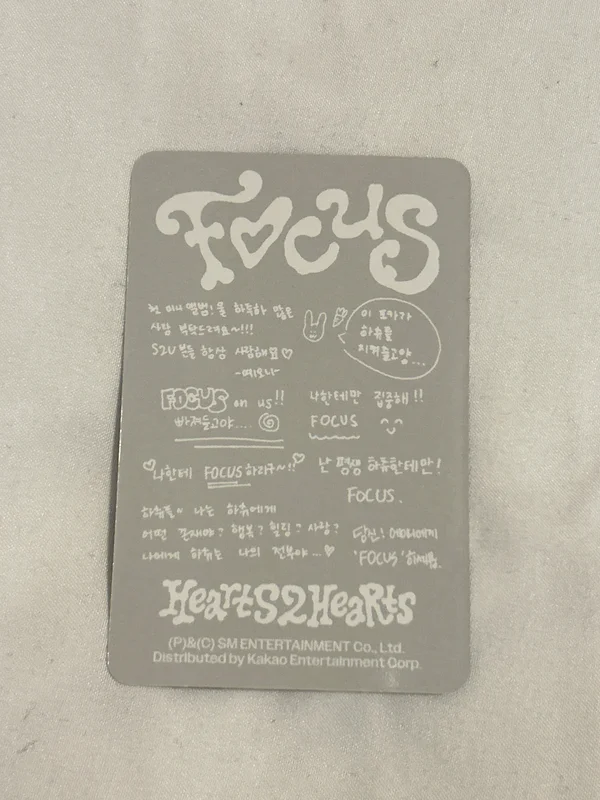 FOCUS
첫 미니앨범! 물 하득하 많은
사랑 부탁드려요~!!!
S2U 분들 항상 사랑해요♡
-예온나-
이 포카가
하츄를
지켜줄고양...
FOCUS on us!!
빠져들고야....
나한테만 집중해!!
FOCUS
나한테 FOCUS 하라구~!!
난 평생 하츄한테만!
FOCUS.
하츄들~ 나는 하츄에게
어떤 존재야? 행복? 힐링? 사랑?
나에게 하츄는 나의 전부야...♥
당신!
'FOCUS'
HeartS2HeaRts
(P)&(C) SM ENTERTAINMENT Co., Ltd.
Distributed by Kakao Entertainment Corp.